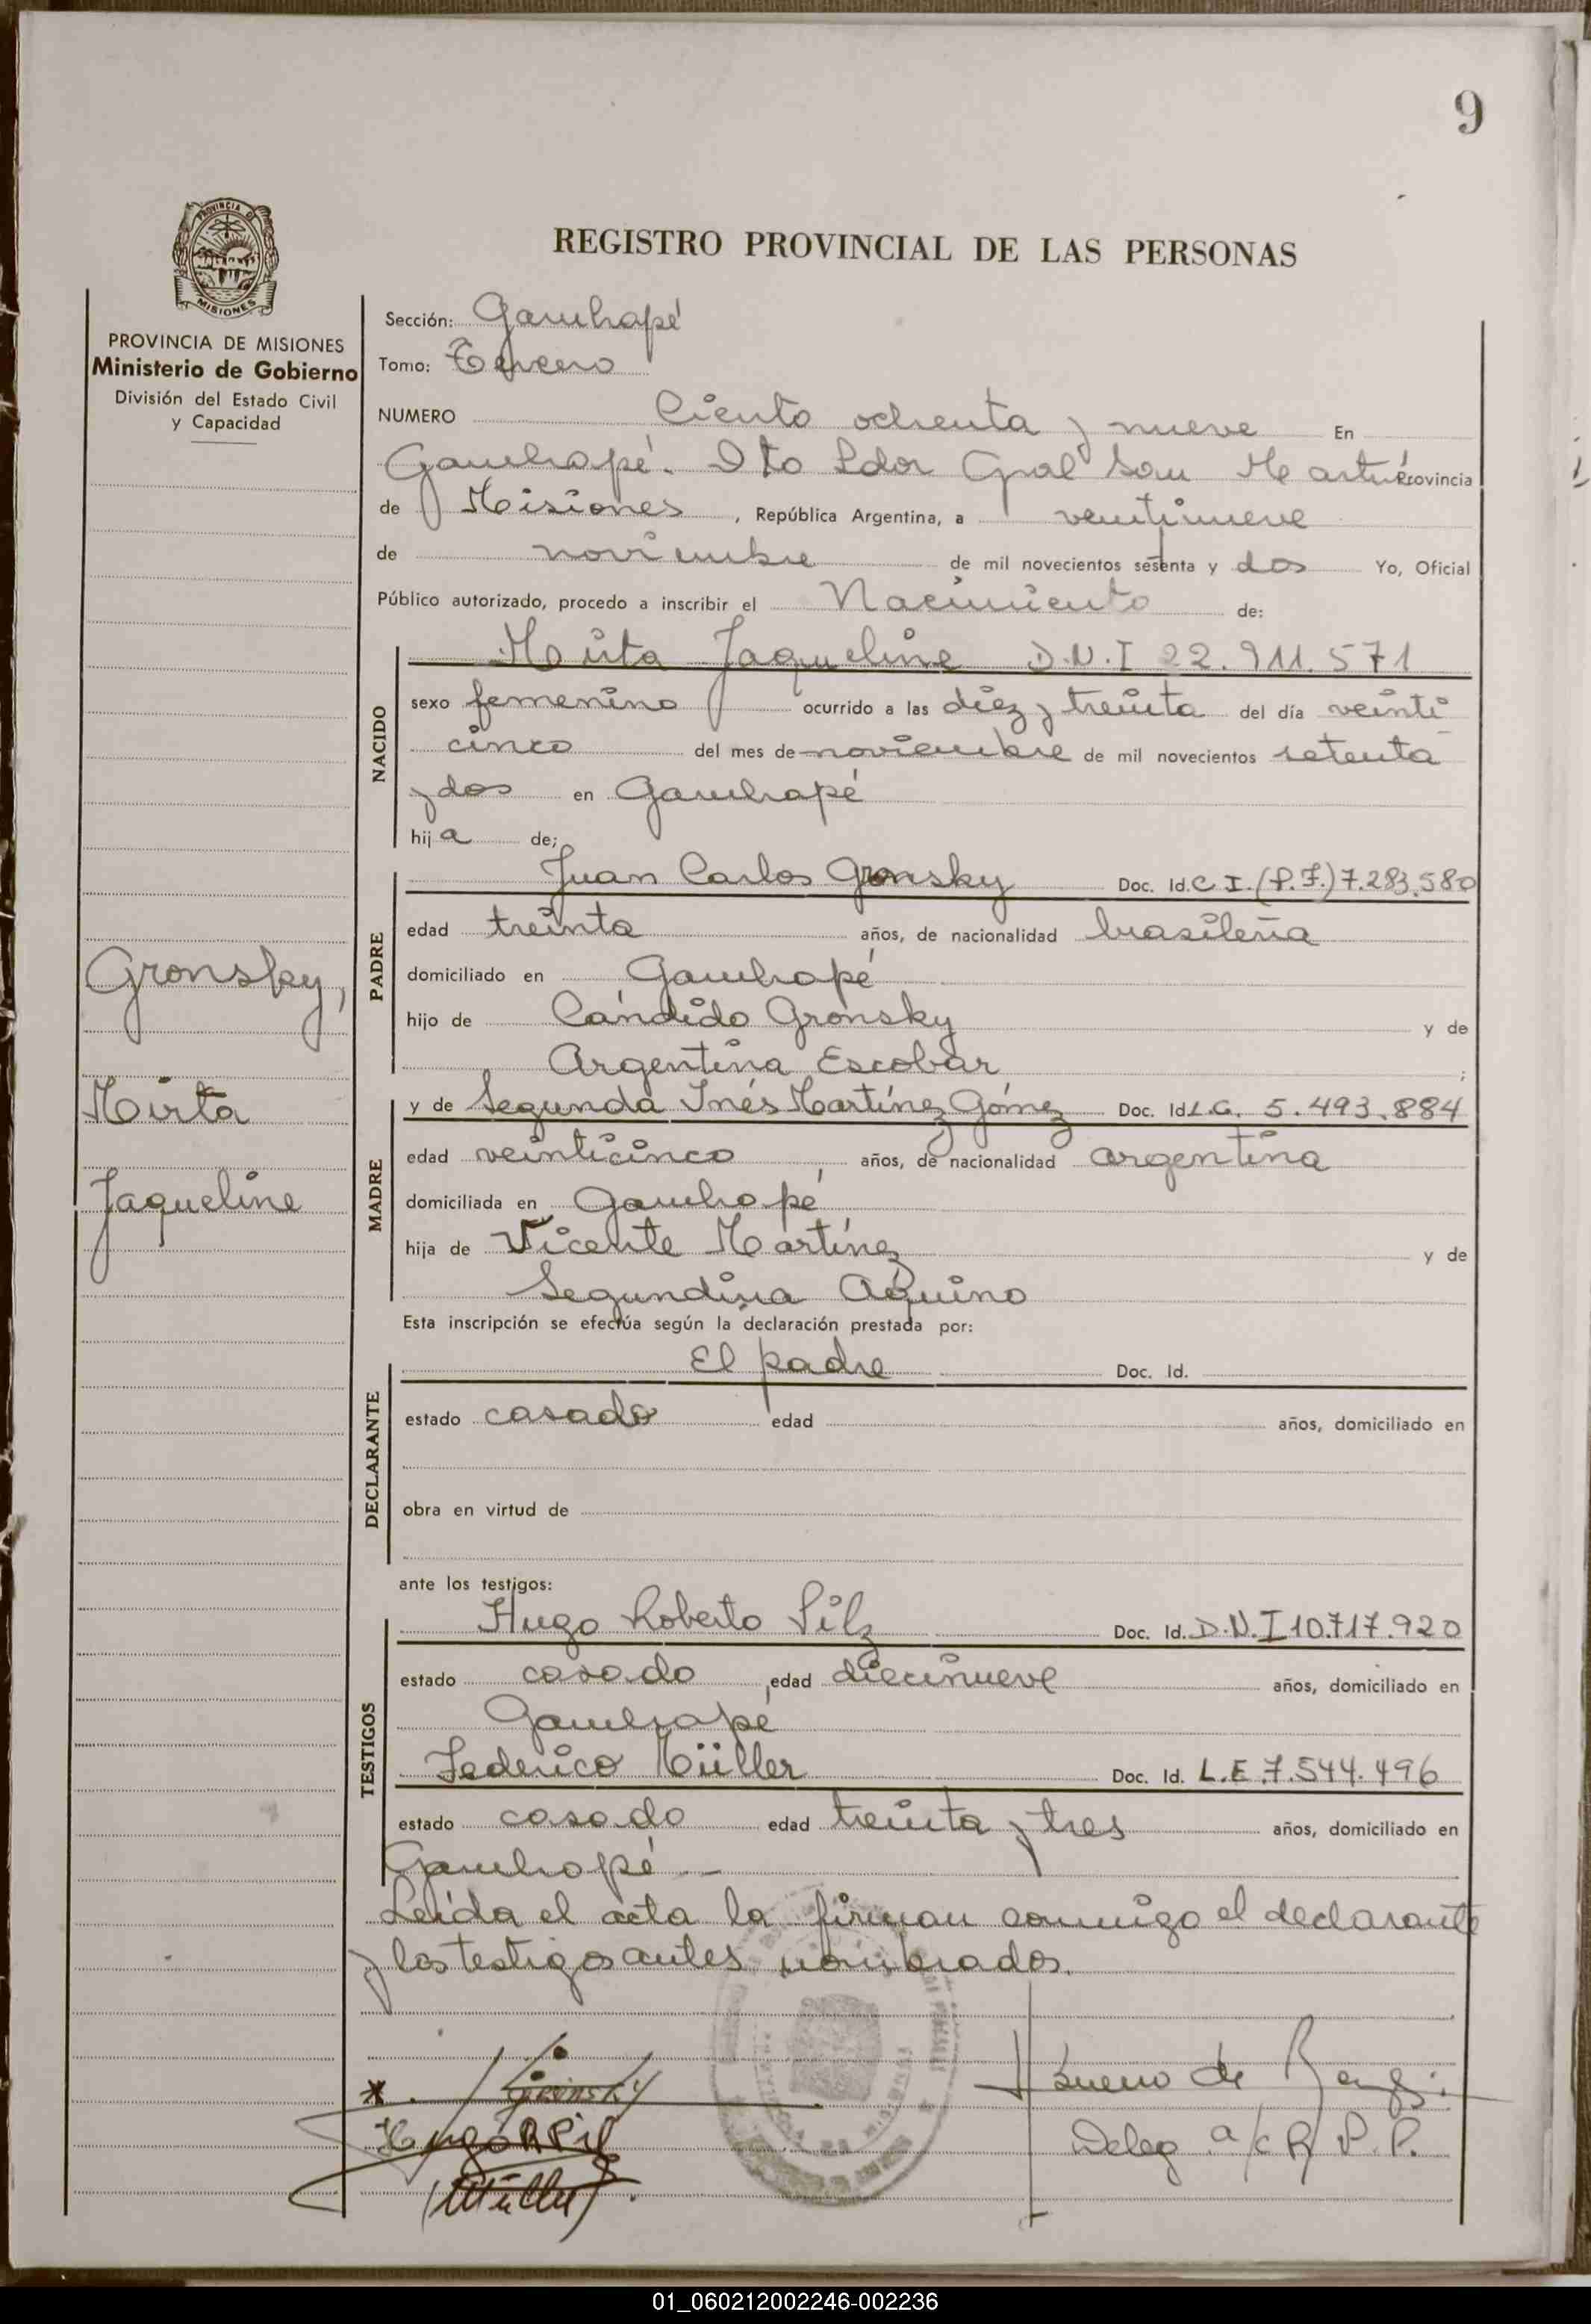 9
PROVINCIA DE
MISIONES
REGISTRO PROVINCIAL DE LAS PERSONAS
PROVINCIA DE MISIONES
Ministerio de Gobierno
División del Estado Civil
y Capacidad
Sección: Garuhapé
Tomo: Tercero
NUMERO Ciento ochenta y nueve En
Garuhapé. Dto Ldor Gral San Martín Provincia
de Misiones, República Argentina, a veintinueve
de noviembre de mil novecientos setenta y dos Yo, Oficial
Público autorizado, procedo a inscribir el Nacimiento de:
NACIDO
Mirta Jaqueline D.N.I 22.911.571
sexo femenino ocurrido a las diez y treinta del día veinti
cinco del mes de noviembre de mil novecientos setenta
y dos en Garuhapé
hija de;
PADRE
Juan Carlos Gronsky Doc. Id. C I. (P.F.) 7.283.580
edad treinta años, de nacionalidad brasileña
domiciliado en Garuhapé
hijo de Cándido Gronsky y de
Argentina Escobar ;
MADRE
y de Segunda Inés Martínez Gómez Doc. Id L.C. 5.493.884
edad veinticinco, años, de nacionalidad argentina
domiciliada en Garuhapé
hija de Vicente Martínez y de
Segundina Aquino
Esta inscripción se efectúa según la declaración prestada por:
DECLARANTE
El padre Doc. Id.
estado casado edad años, domiciliado en
obra en virtud de
ante los testigos:
TESTIGOS
Hugo Roberto Pilz Doc. Id. D.N.I 10.717.920
estado casado, edad diecinueve años, domiciliado en
Garuhapé
Federico Müller Doc. Id. L.E.7.544.496
estado casado edad treinta y tres años, domiciliado en
Garuhapé
Leída el acta la firman conmigo el declarante
y los testigos antes nombrados.
Gronsky,
Mirta
Jaqueline
Gronsky
Hugo R Pilz
Müller
de
Deleg a/c R P. P.
01_060212002246-002236